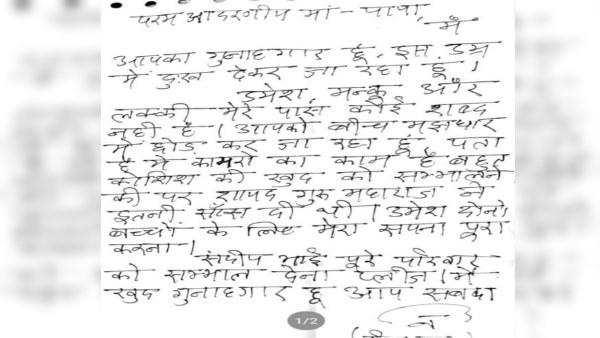 परम आदरणीय मां - पापा,
मैं
आपका गुनाहगार हूं, इस उम्र
में दुःख देकर जा रहा हूं।
उमेश, मन्कू और
लक्की मेरे पास कोई शब्द
नही है। आपको बीच मझधार
में छोड़ कर जा रहा हूं, पता
है ये कायरों का काम है बहुत
कोशिश की खुद को सम्भालने
की पर शायद गुरु महाराज ने
इतनी सॉस दी थी। उमेश दोनो
बच्चो के लिए मेरा सपना पूरा
करना।
संदीप भाई पूरे परिवार
को सम्भाल देना प्लीज। मैं
खुद गुनाहगार हूं आप सबका
1/2